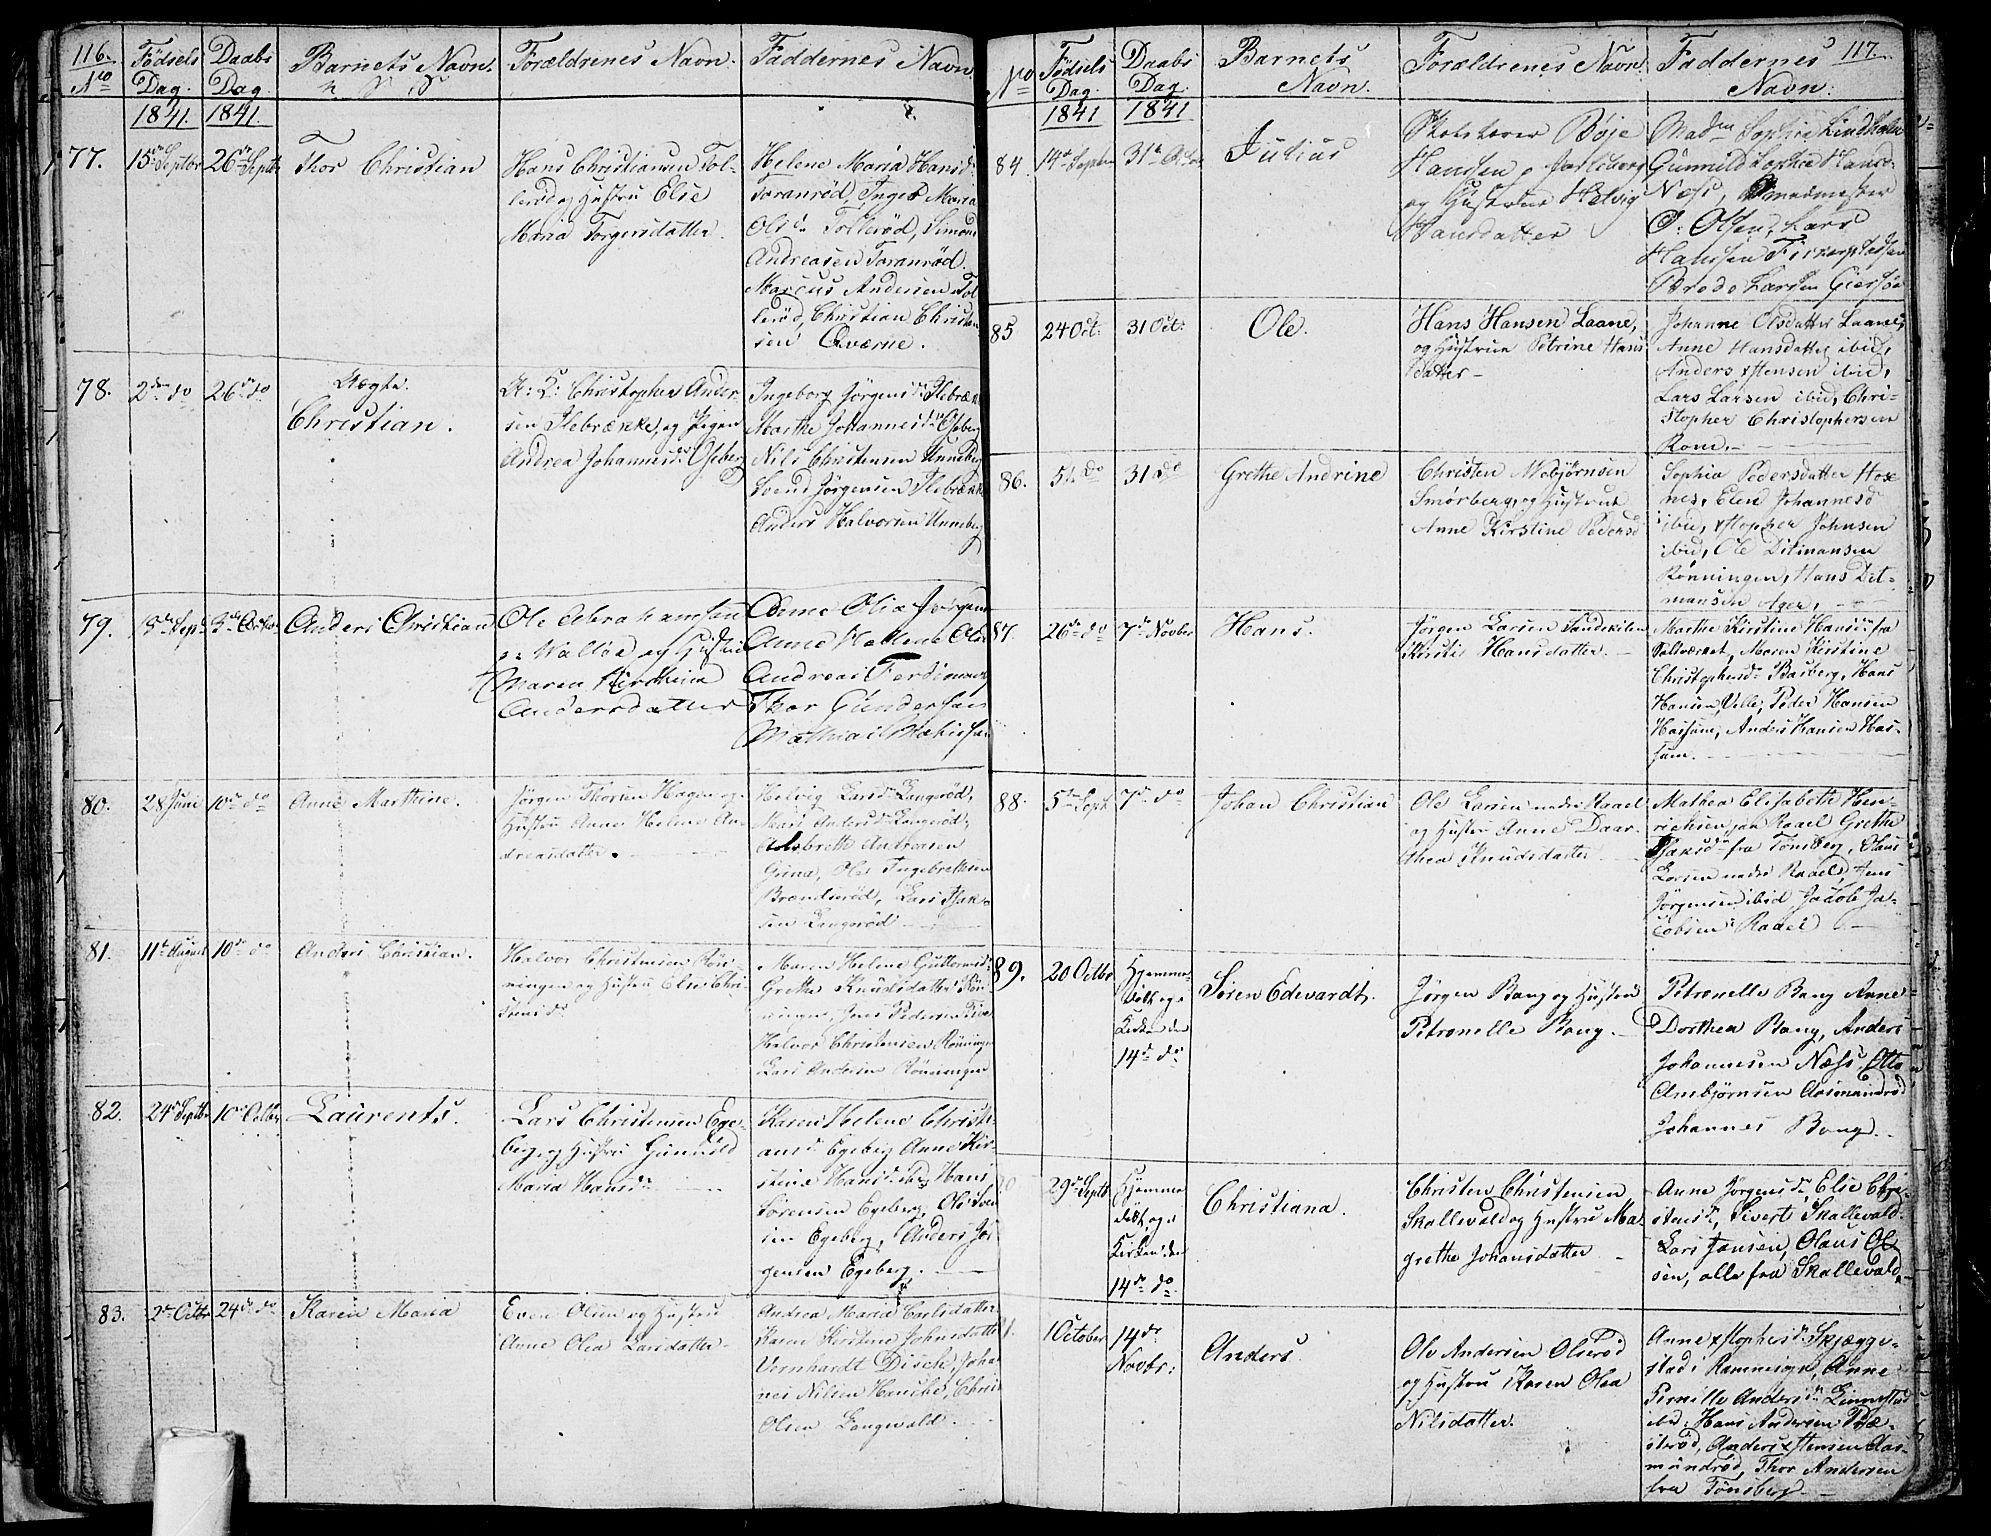 116.
No
Fødsels
Dag.
Daabs
Dag
Barnets Navn.
Forældrenes Navn.
Faddernes Navn
1841.
1841.
77.
15de Septbr
26de Septb
Thor Christian
Hans Christiansen Tol-
lerød og Hustru Else
Maria Torgersdatter.
Helene Maria Hansd:
Toranrød, Inger Maria
Olsdr Tollerød, Simon
Andreasen Toranrød.
Marcus Andersen Tol-
lerød, Christian Christen
sen Qværne.
78.
2den do
26de do
Uægte.
Christian.
U: K: Christopher Ander-
sen Ilebrække, og Pigen
Andrea Johannesdr Oseberg
Ingeborg Jørgensdr Ilebræk
Marthe Johannesdr Oseberg
Nils Christensen Unneberg
Svend Jørgensen Ilebrække
Anders Halvorsen Unneberg
79.
18de Sept
3de Octbr
Anders Christian
Ole Abrahamsen
Walløe og Hustru
Maren Kirstine
Andersdatter
Anne Olia Jørgens
Anne Hellene Ols
Andreas Ferdinand
Thor Gundersen
Mathias Mathisen
80.
28 Juni
10de do
Anne Marthine.
Jørgen Thorsen Hagen og
Hustru Anne Helene An-
dreasdatter.
Helvig Larsd Langerød,
Mari Andersdr Langerød,
Andreasen
Grina, Ole Ingebretsen
Brændserød, Lars Isak-
sen Langerød
81.
11te August
10de do
Anders Christian.
Halvor Christensen Røn-
ningen og Hustru Else Chri-
stensdr
Maren Helene Guttormsdr
Grethe Knudsdatter Røn-
ningen, Jens Pedersen
Halvor Christensen Rønningen
Lars Andersen Rønningen
82.
24de Septbr
10de Octbr
Laurents.
Lars Christensen Ege-
berg og Hustru Gunnild
Maria Hansdr
Karen Helene Christi-
ansd Egeberg Anne Kir-
stine Hansdr ibd Hans
Sørensen Egeberg, Ole Sven
sen Egeberg, Anders Jør
gensen Egeberg.
83.
2de Octbr
24de do
Karen Maria
Even Olsen og Hustru
Anne Olea Larsdatter
Andrea Maria Carlsdatter
Karen Kirstine Johnsdatter
Vernhardt Disch, Johan
nes Nilsen Haucke, Chris
Olsen Langevald.
117.
No
Fødsels
Dag.
Daabs
Dag.
Barnets
Navn.
Forældrenes Navn
Faddernes
Navn.
1841
1841
84.
14de Septbr
31te Octbr
Julius
Skolelærer Bøje
Hansen Jarlsberg
og Hustrue Helvig
Hansdatter
Madm Sophie Lindholm
Gunnild Sophie Hansd
Næss, Smedmester
O: Olsen, Lars
Hansen
Brede Larsen
85
24 Oct.
31 Oct:
Ole.
Hans Hansen Laane,
og Hustrue Petrine Hans-
datter
Johanne Olsdatter Laane,
Anne Hansdatter ibid,
Anders Xstensen ibid,
Lars Larsen ibid, Chri-
stopher Christophersen
Rom.
86.
5te do
31 do
Grethe Andrine
Christen Abjørnsen
Smørberg, og Hustrue
Anne Kirstine Pedersd
Sophia Pedersdatter Hox
nes, Elen Johannesd
ibid, Xstopher Johnsen
ibid, Ole Ditmansen
Rønningen, Hans Dit-
mansen Ager.
87.
26de do
7de Novber
Hans.
Jørgen Larsen Sandekilen
Kirsti Hansdatter.
Marthe Kirstine Hansdr fra
Valværket, Maren Kirstine
Christophersdr Basberg, Hans
Hansen Velle, Peder Hansen
Hassum, Anders Hansen Has-
sum.
88.
5te Sept
7de do
Johan Christian
Ole Larsen nedre Raael
og Hustru Anne Daar-
thea Knudsdatter
Mathea Elisabeth Hen-
richsen, paa Raael Grethe
Isaksdr fra Tønsberg, Claus
Larsen nedre Raael, Jens
Jørgensen ibid, Jacob Ja-
cobsen Raael
89.
20 Octbr
Hjemme-
døbt og i
Kirken den
14de do
Søren Edevardt.
Jørgen Bang og Hustru
Petronelle Bang
Petronelle Bang Anne
Dorthea Bang, Anders
Johannesen Næss, Otto
Ambjørnsen Aasmundrød
Johannes Bang.
29de Septb
Hjemme
døbt, og i
Kirken den
14de do
Christiana.
Christen Christensen
Skallevald og Hustru Ma-
grethe Johansdatter
Anne Jørgensdr, Else Chri-
stensdr, Sivert Skallevald
Lars Jansen, Olaus Ol-
sen, alle fra Skallevald
1.
1 October
14de
Novbr:
Anders.
Ole Andersen Olserød
og Hustru Karen Olea
Nilsdatter.
Anne Xstophersdr Skjægge-
stad i Ramnesogn, Anne
Pernille Andersdr Linnestad
ibd: Hans Andersen Præ-
sterød, Anders Xstensen Aas-
mundrød, Thor Andersen
fra Tønsberg.